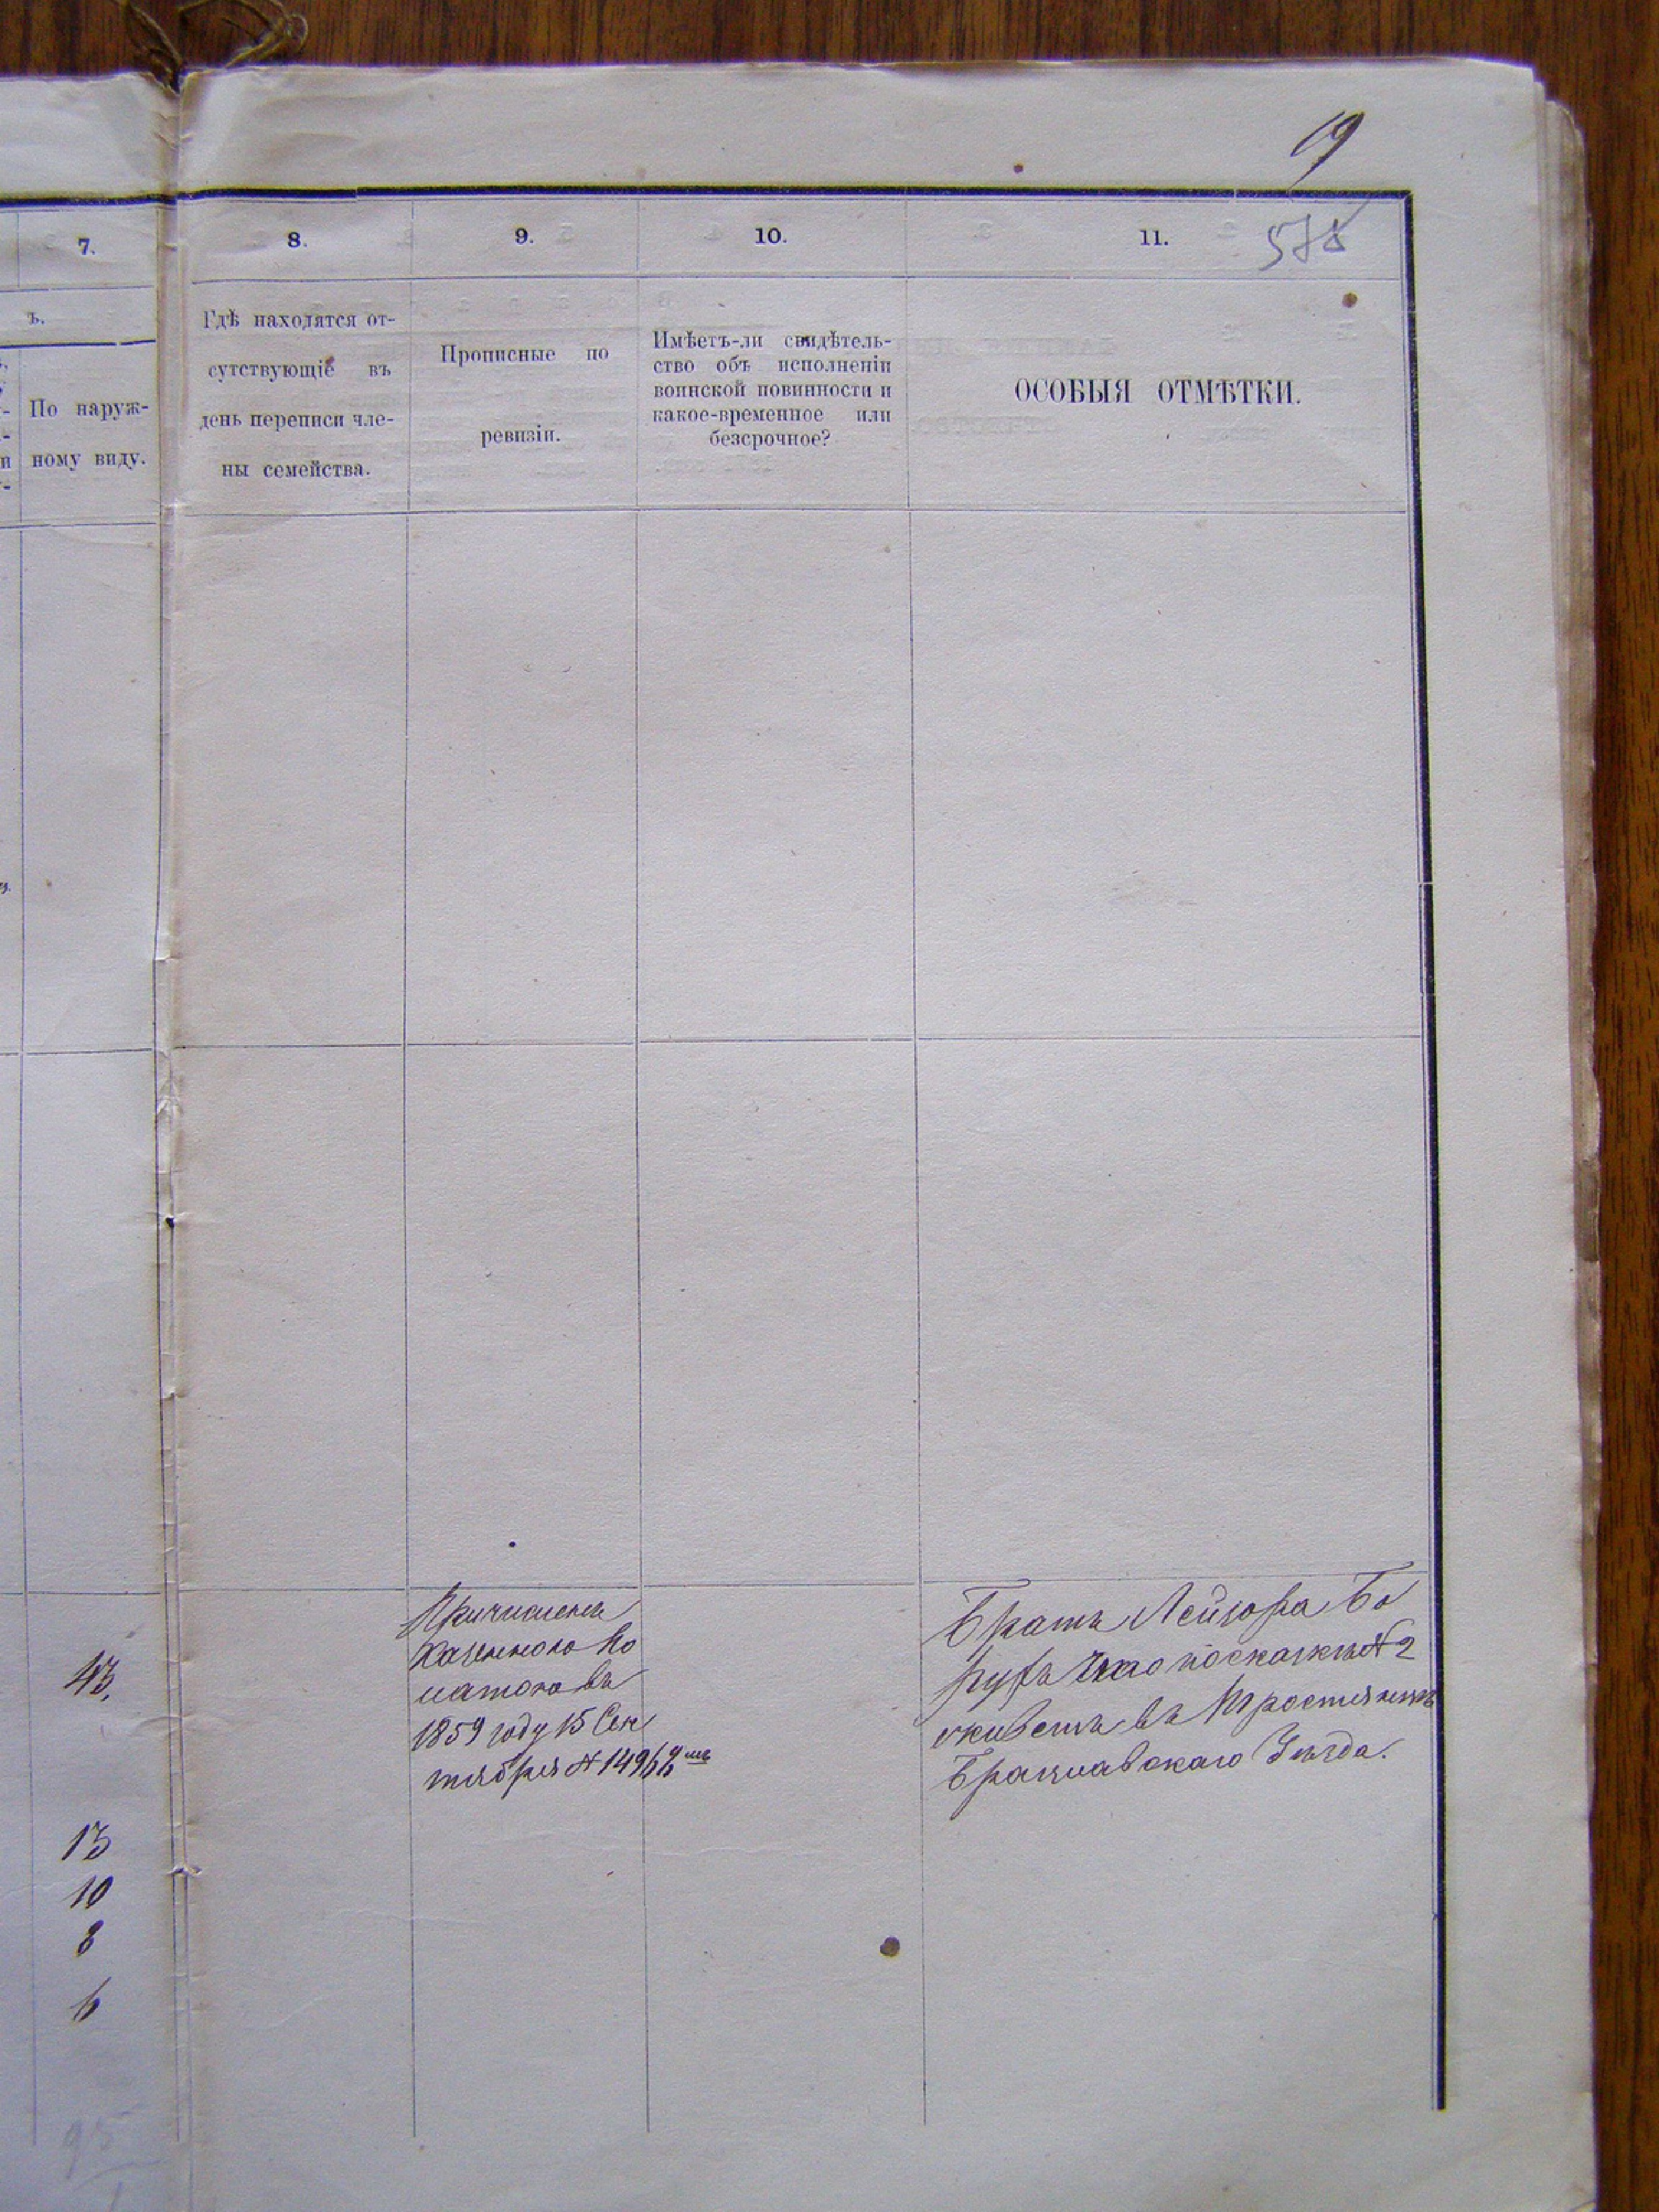 19
578
7.
8.
9.
10.
11.
ъ.
По наруж-
ному виду.
Гдѣ находятся от-
сутствующіе въ
день переписи чле-
ны семейства.
Прописные по
ревизіи.
Имѣетъ-ли свидѣтель-
ство объ исполненіи
воинской повинности и
какое-временное или
безсрочное?
ОСОБЫЯ ОТМѢТКИ.
43.
13
10
8
6
Причисленъ
Казенного По
латою въ
1859 году 15 Сен
тября №
Братъ Лейзора Бо
по скаскѣ № 2
живетъ въ Тростянцѣ
Брацлавскаго Уѣзда.
95